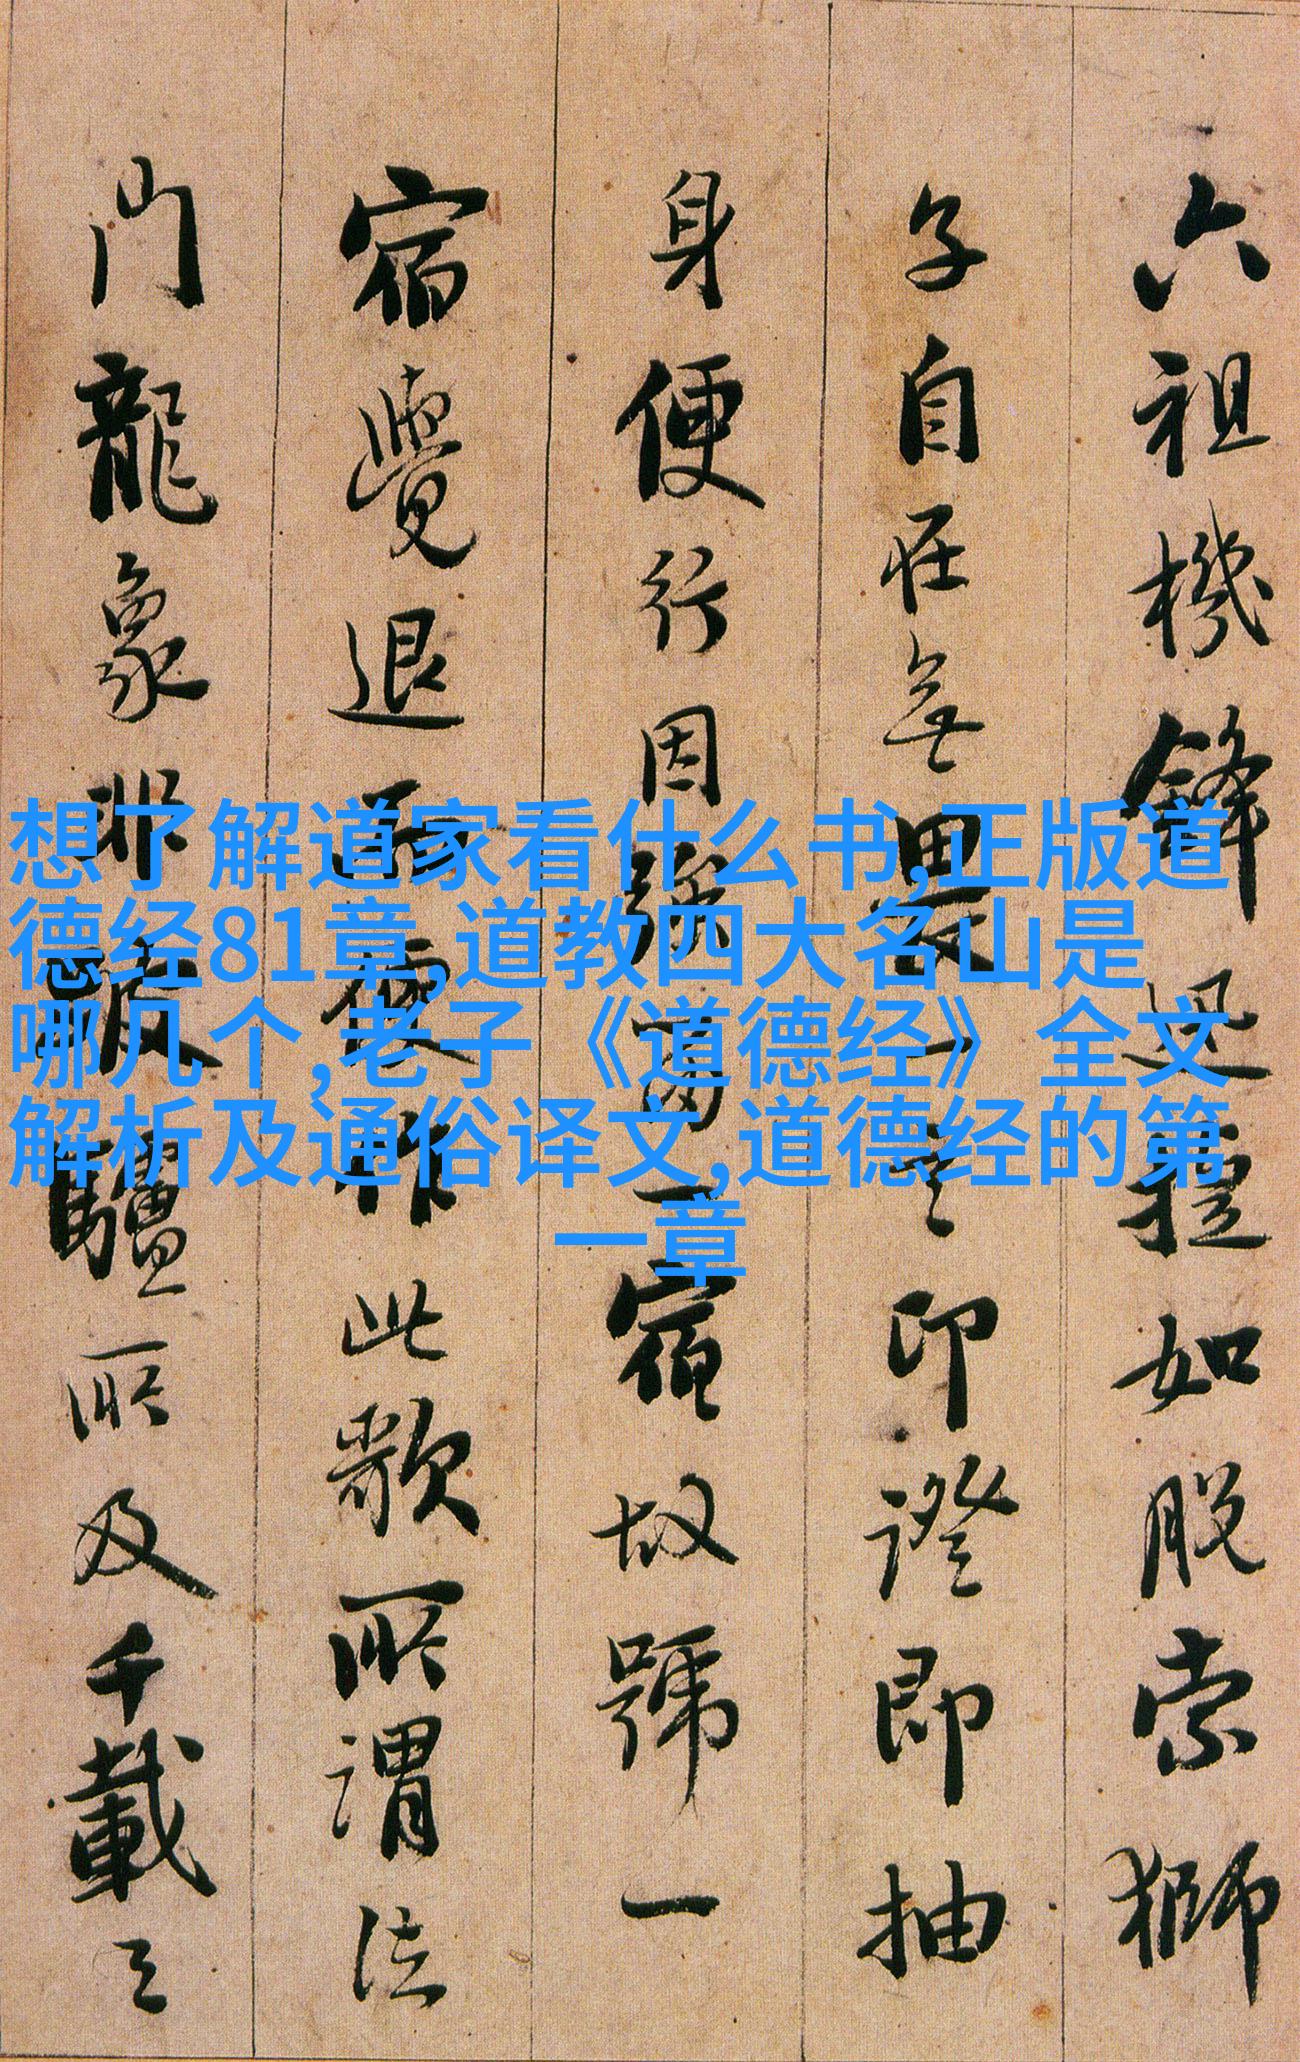 六祖機鋒迅捷如脫索獅
子自在無畏一言印證即抽
身便行因強留一宿故號一
宿覺退而便作此歌所謂法
門龍象非跛驢所及千載之
想了解道家看什么书,正版道
德经81章,道教四大名山是
哪几个,老子《道德经》全文
解析及通俗译文,道德经的第
一章